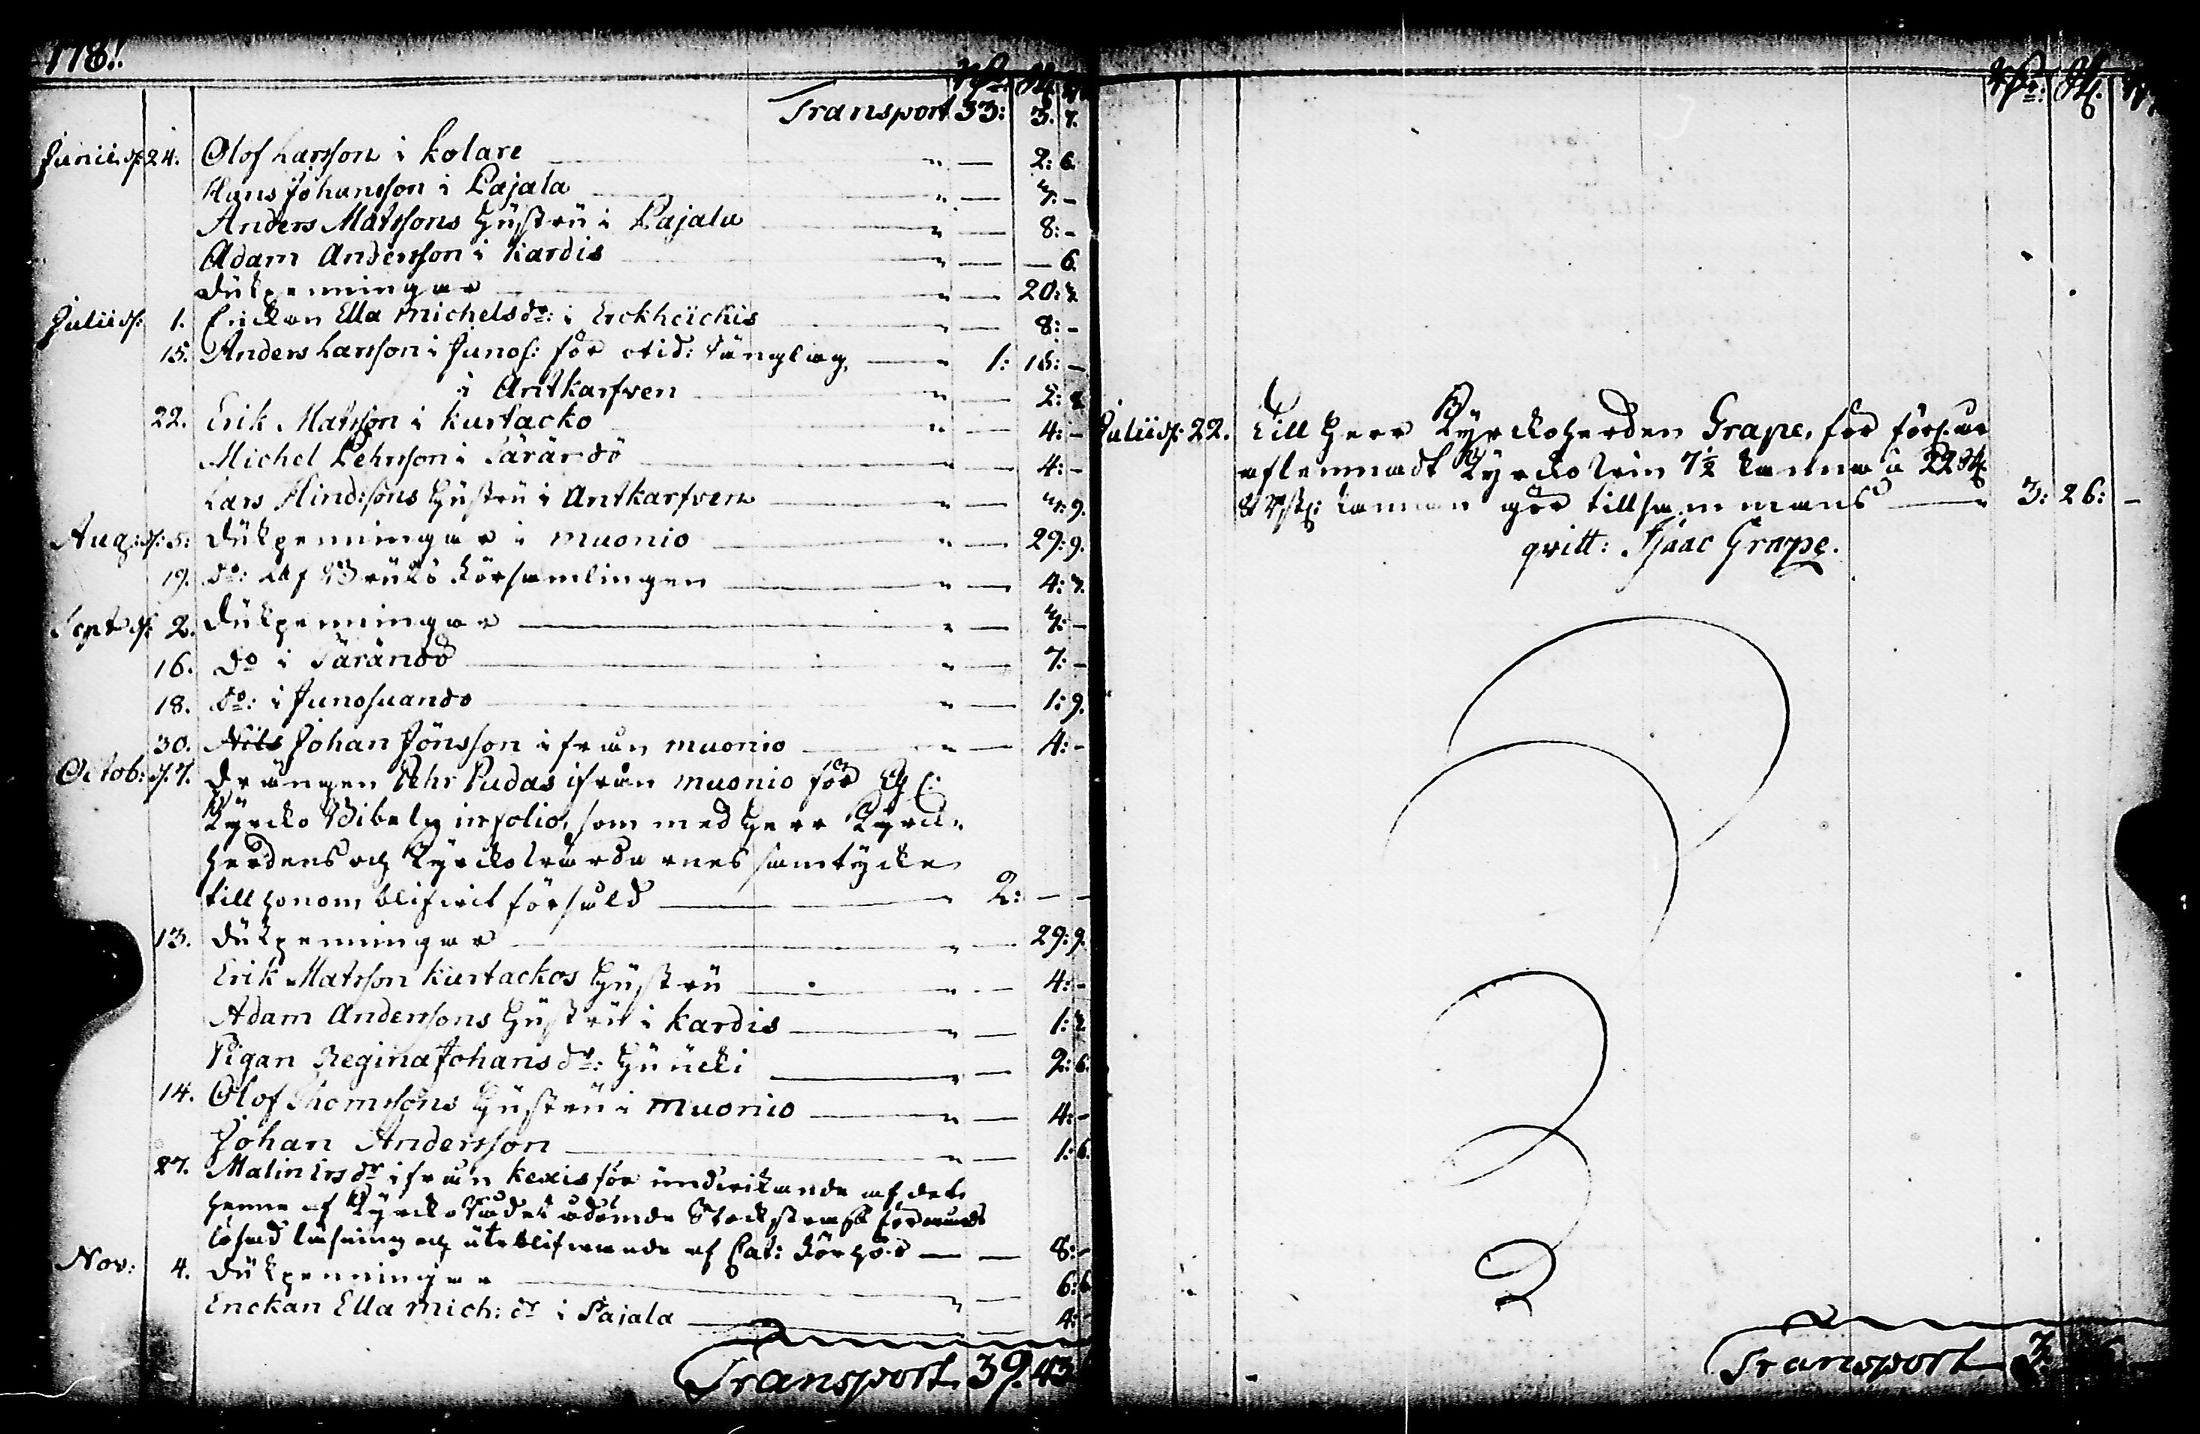 1781.
Rdr: sk. rst.
Transport 33: 3. 7.
Junii d: 24. Olof Larsson i Kolare " — 2: 6.
Hans Johansson i Pajala " — 7: -
Anders Matssons Hustru i Pajala " — 8: -
Adam Andersson i Kardis " — — 6.
Dukpenningar " — 20: 7.
Julii d: 1. Enckan Ella Michelsdr: i Erckheickis " — 8: -
15. Anders Larsson i Junos: för otid: Sänglag, " 1: 15: —
i Antkarfven " — 2: 8.
22. Erik Matsson i Kurtacko " — 4: -
Michel Pehrsson i Tärändö " — 4: -
Lars Hindssons Hustru i Antkarfven " — 7: 9.
Aug: d: 5: Dukpenningar i Muonio " — 29: 9.
19. do: af Bruks Församlingen " — 4: 7.
Sept d: 2. Dukpenningar " — 7: -
16. do i Tärändö " — 7: -
18. do: i Junosuando " — 1: 9.
30. Nils Johan Jönsson ifrån Muonio " — 4: -
Octob: d. 7. Drängen Pehr Pudas ifrån Muonio för
Kyrcko Bibeln in folio, som med Herr Kyrck-
herdens och Kyrckovärdarnes samtycke
till honom blifvit försåld " 2: — -
13. Dukpenningar " — 29: 9.
Erik Matsson Kurtackos Hustru " — 4: -
Adam Anderssons Hustru i Kardis " — 1: 7.
Pigan Regina Johansdr: Huucki " — 2: 6.
14. Olof Thomssons Hustru i Muonio " — 4: -
Johan Andersson " — 1: 6.
27. Malin Ersdr ifrån Kexis för undvikande af det
henne af Kyrcko Rådet ådömde Stockstraff för
läsning och uteblifvande af Cat: Förhör — — 8: -
Nov: 4. Dukpenningar " — 6: 6
Enckan Ella Mich: dr i Pajala — 4:
Transport 39. 43
Rdr: sk. rst.
Julii d: 22. Till Herr Kyrckoherden Grape, för
aflemnadt Kyrckovin 7½ kanna à 22 sk
8 rst: kannan gör tillsammans " 3: 26: —
qvitt: Isaac Grape.
Transport 3.